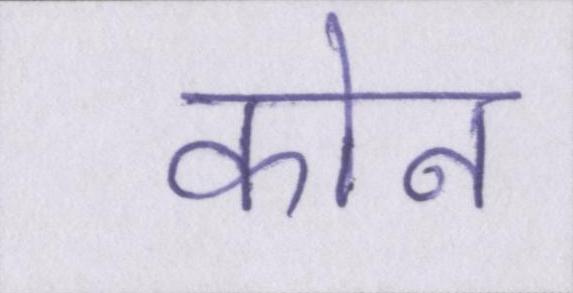 कोन